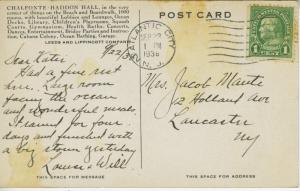 CHALFONTE-HADDON HALL, in the very
center of things on the Beach and Boardwalk, 1000
rooms, with beautiful Lobbies and Lounges, Ocean
Decks, Library, Children's Playrooms, Squash
Courts, Gymnasium, Health Baths, Concerts,
Dances, Entertainment, Bridge Parties and Instruc-
tion, Cabana Colony, Ocean Bathing, Garage.
LEEDS AND LIPPINCOTT COMPANY
POST CARD
ATLANTIC CITY
SEP 22
1 PM
1936
N. J.
1 1
9/22/36
Dear Kater,
Had a fine rest
here. Large room
facing the ocean
and wonderful meals
Planned for four
days and finished with
a big storm yesterday
Louisa & Will
Mrs. Jacob Mante
Holland Ave
Lancaster
NY
THIS SPACE FOR MESSAGE
THIS SPACE FOR ADDRESS